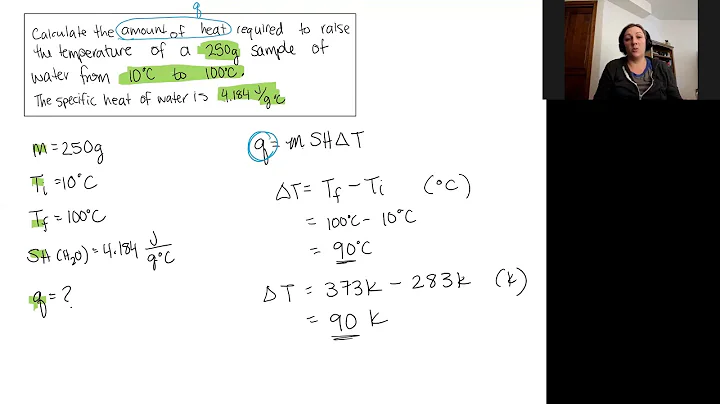 q
Calculate the amount of heat required to raise
the temperature of a 250g sample of
water from 10°C to 100°C.
The specific heat of water is 4.184 J/g°C
m = 250g
Ti = 10°C
Tf = 100°C
SH (H2O) = 4.184 J/g°C
q = ?
q = m SH ΔT
ΔT = Tf - Ti (°C)
= 100°C - 10°C
= 90°C
ΔT = 373K - 283K (K)
= 90 K